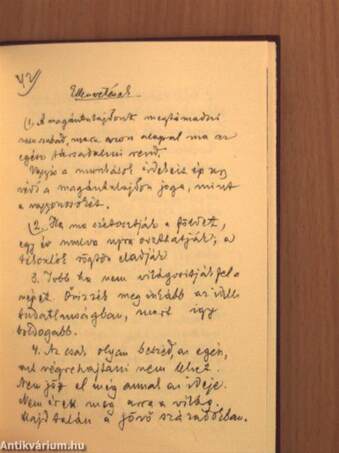 42/
Ellenvetések.
(1. A magántulajdont megtámadni
nem szabad, mert azon alapul ma az
egész társadalmi rend.
Vagyis a munkások érdekeit ép úgy
védi a magántulajdon joga, mint
a vagyonosokét.
(2. Ha ma szétosztják a földet,
egy év mulva ujra oszthatják; a
telkesek rögtön eladják
3. Jobb ha nem világositják fel a
népet. Őrizzék meg inkább az
tudatlanságban, mert így
boldogabb.
4. Az csak olyan beszéd, az egész,
mit végrehajtani nem lehet.
Nem jött el még annak az ideje.
Nem érett meg arra a világ.
Majd talán a jövő században.
Antikvárium.hu